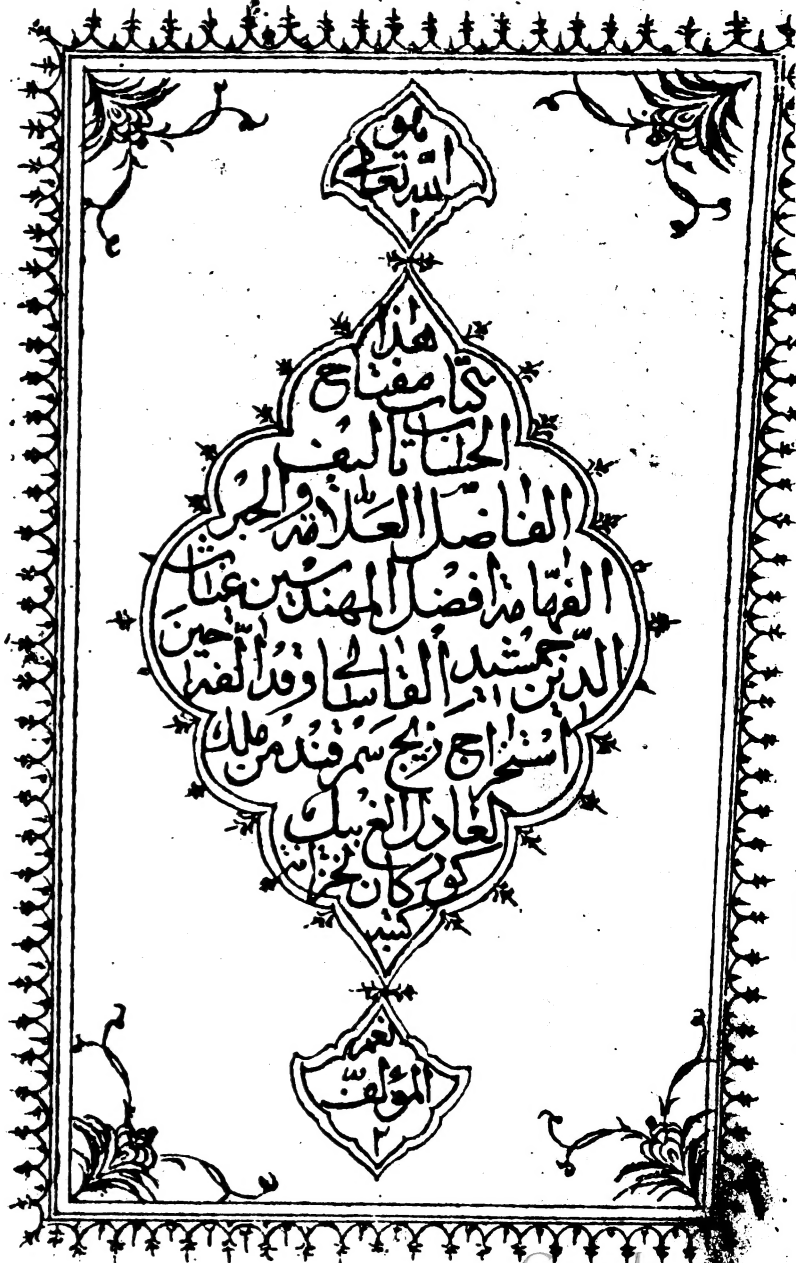 هو
الله تعالى
١
هذا
كتاب مفتاح
الحساب تأليف
الفاضل العلامة والحبر
الفهامة افضل المهندسين غياث
الدين جمشيد القاساني وقد الفه حين
استخراج زيج سمرقند من ملك
لعادل الغ بيك
كوركان لخزانة
كتبه
المؤلف
٢